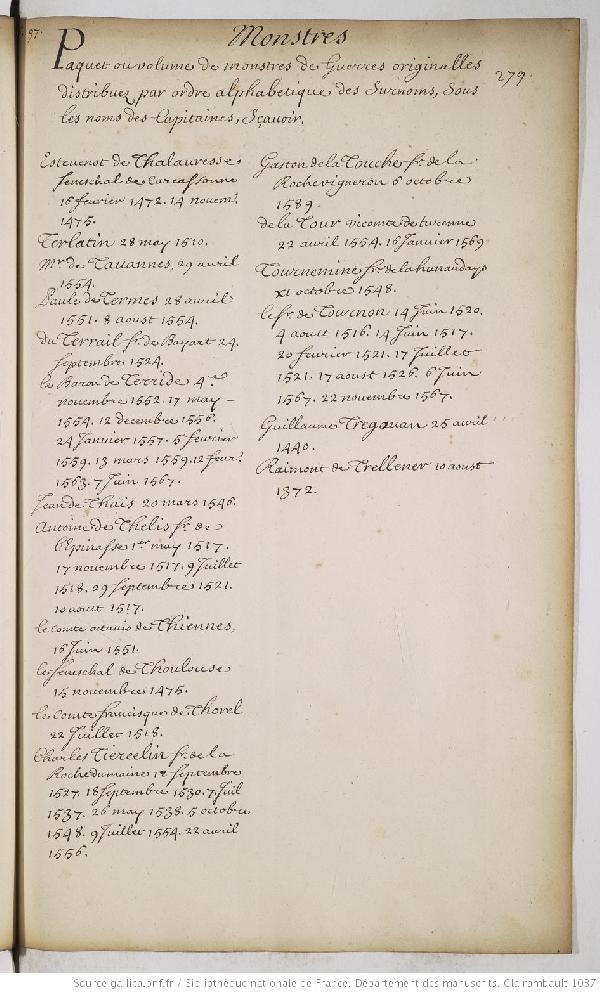 97.
Monstres
Paquet ou volume de monstres de Guerres originalles
279.
distribuez par ordre alphabetique des Surnoms, Sous
les noms des Capitaines, Sçavoir.
Estevenot de Thalauresse
seneschal de Carcassonne
16 fevrier 1472. 14 novemb.
1475.
Terlatin 28 may 1510.
Mr. de Tauannes, 29 avril
1554.
Paule de Termes 28 avril
1551. 8 aoust 1554.
du Terrail sr. de Bayart 24.
septembre 1524.
le Baron de Terride 4.e
novembre 1552. 17 may
1554. 12 decembre 1556.
24 Janvier 1557. 5 fevrier
1559. 13 mars 1559. 12 fevr.
1563. 7 Juin 1567.
Jean de Thais 20 mars 1546.
Antoine de Thelis sr. de
l'Epinasse 1er may 1517.
17 novembre 1517. 9 Juillet
1518. 29 septembre 1521.
10 aoust 1517.
le comte octavio de Thiennes,
16 Juin 1551.
le seneschal de Thoulouse
15 novembre 1475.
le Comte francisque de Thorel
22 Juillet 1518.
Charles Tiercelin sr. de la
Rochedumaine 12 septembre
1527. 18 septembre 1530. 7 Juil
1537. 26 may 1538. 5 octobre
1548. 9 Juillet 1554. 22 avril
1556.
Gaston de la Touche sr. de la
Rochevigneron 6 octobre
1589.
de la Tour vicomte de turenne
22 avril 1554. 16 Janvier 1569.
Tournemine sr. de la hunaudaye
XI octobre 1548.
le sr. de Tournon 14 Juin 1520.
4 aoust 1516. 14 Juin 1517.
20 fevrier 1521. 17 Juillet
1521. 17 aoust 1526. 6 Juin
1567. 22 novembre 1567.
Guillaume Tregouan 25 avril
1440.
Raimont de Trellener 10 aoust
1372.
Source gallica.bnf.fr / Bibliothèque nationale de France. Département des manuscrits. Clairambault 1037